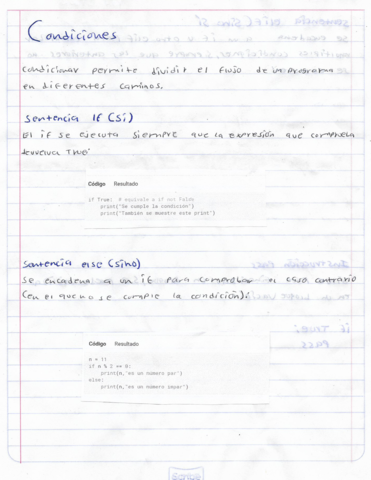 Condiciones
Condicionar permite dividir el flujo de un programa
en diferentes caminos.
Sentencia If (Sí)
El if se ejecuta siempre que la expresión que comprueba
devuelva TRUE:
Código Resultado
if True: # equivale a if not False
print("Se cumple la condición")
print("También se muestre este print")
Sentencia else (sino)
Se encadena a un if para comprobar el caso contrario
(en el que no se cumple la condición):
Código Resultado
n = 11
if n % 2 == 0:
print(n,"es un número par")
else:
print(n,"es un número impar")
Scribe